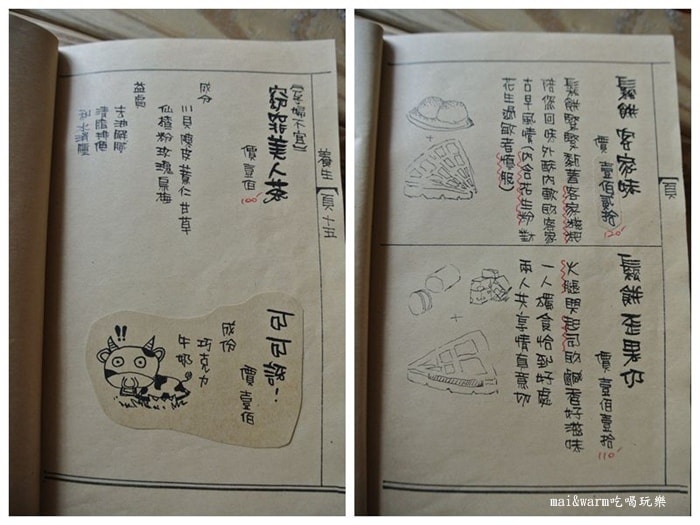 養生【頁十五】
窈窕美人茶
【孕婦不宜】
價壹佰
100
成分
川貝 陳皮 薏仁 甘草
仙楂粉 玫瑰 烏梅
益處
去油解膩
清腸排便
利水消腫
說!
價壹佰
成份
巧克力
牛奶
!!
【頁
鬆餅客家味
價壹佰貳拾
120
鬆餅緊緊黏著客家麻糬
陪你回味外酥內軟的客家
古早風情(內含花生粉對
花生過敏者慎服)
+
鬆餅歪果仁
價壹佰壹拾
110
火腿跟起司的鹹香好滋味
一人獨食恰到好處
兩人共享情真意切
+
mai&warm吃喝玩樂